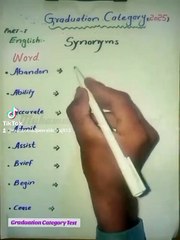 Graduation Category, 2025,
PART-1
English:-
Synonyms
Word
• Abandon →
• Ability →
• Accurate
• Admit
• Assist
• Brief →
• Begin →
• Cease →
TikTok
Graduation Category Test